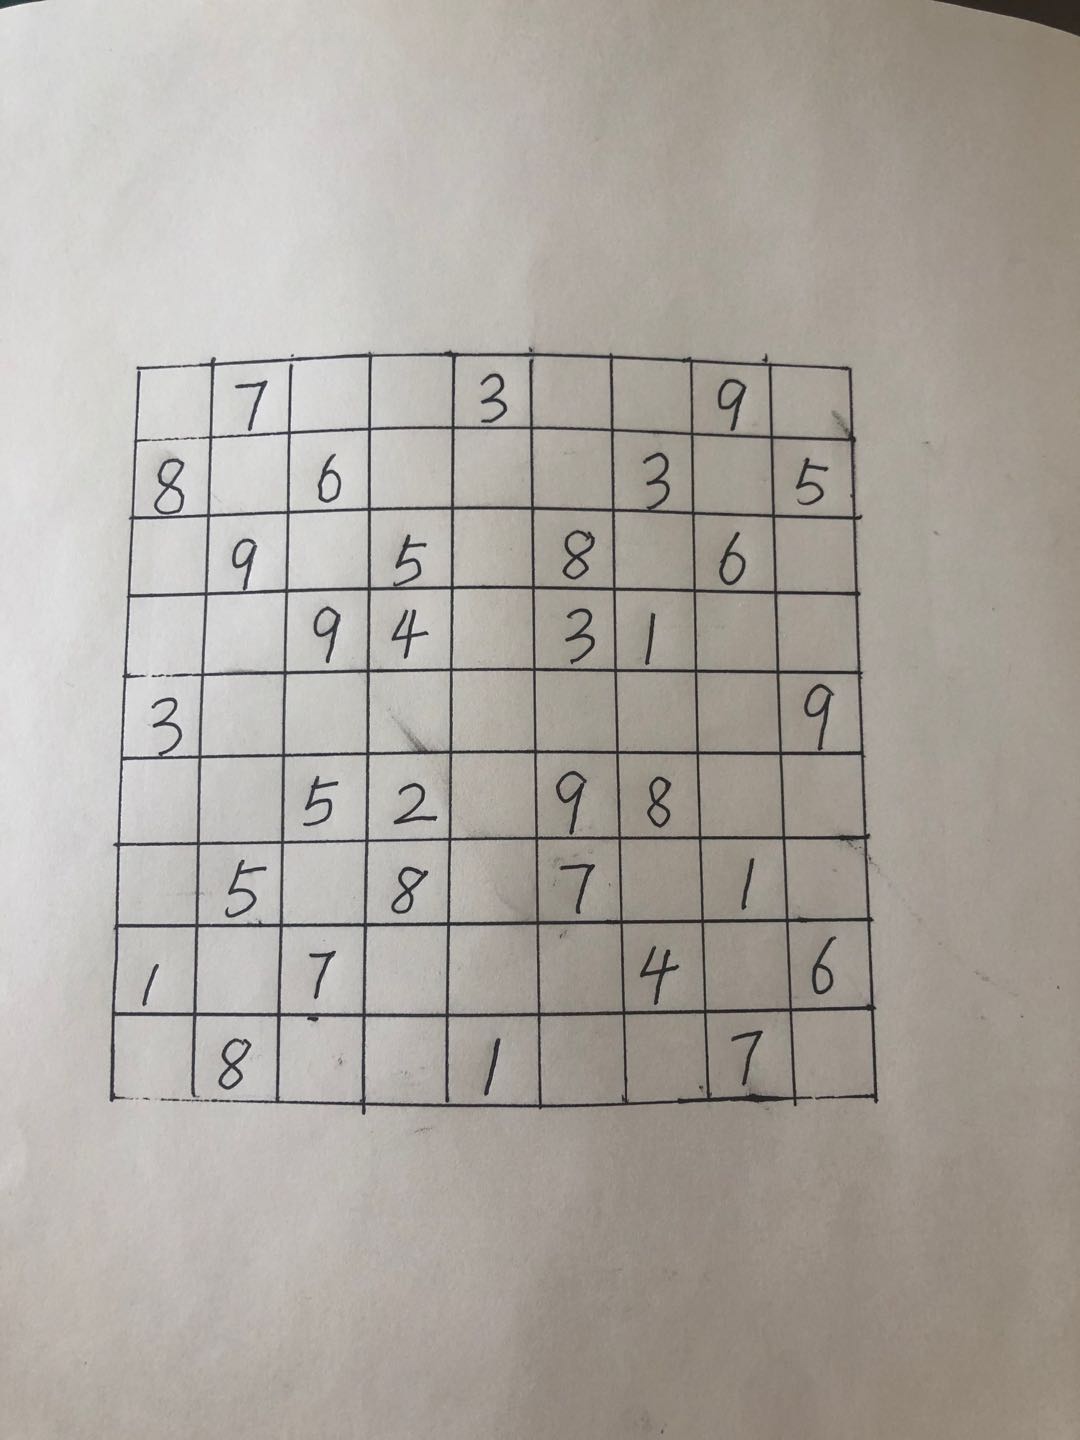 7 3 9
8 6 3 5
9 5 8 6
9 4 3 1
3 9
5 2 9 8
5 8 7 1
1 7 4 6
8 1 7